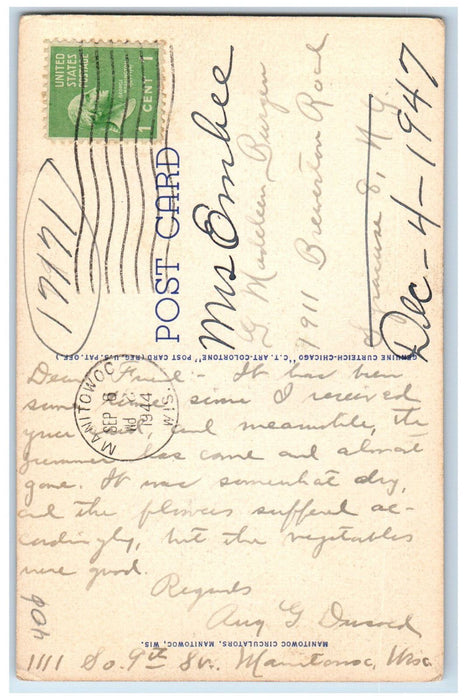 UNITED
STATES
POSTAGE
1 CENT 1
17161
POST CARD
Mrs Embee
G Madeleen Burgen
7911 Brewerton Road
Syracuse 8, N.Y.
Dec - 4 - 1947
GENUINE CURTEICH-CHICAGO "C.T. ART-COLORTONE" POST CARD (REG. U.S. PAT. OFF.)
MANITOWOC
SEP 8
1944
WIS.
Dear Friend - It has been
some time since I received
your card, and meanwhile, the
summer has come and almost
gone. It was somewhat dry,
and the flowers suffered ac-
cordingly, but the vegetables
were good.
Regards
Aug G.
1111 So. 9th St., Manitowoc, Wisc.
MANITOWOC CIRCULATORS, MANITOWOC, WIS.
40¢